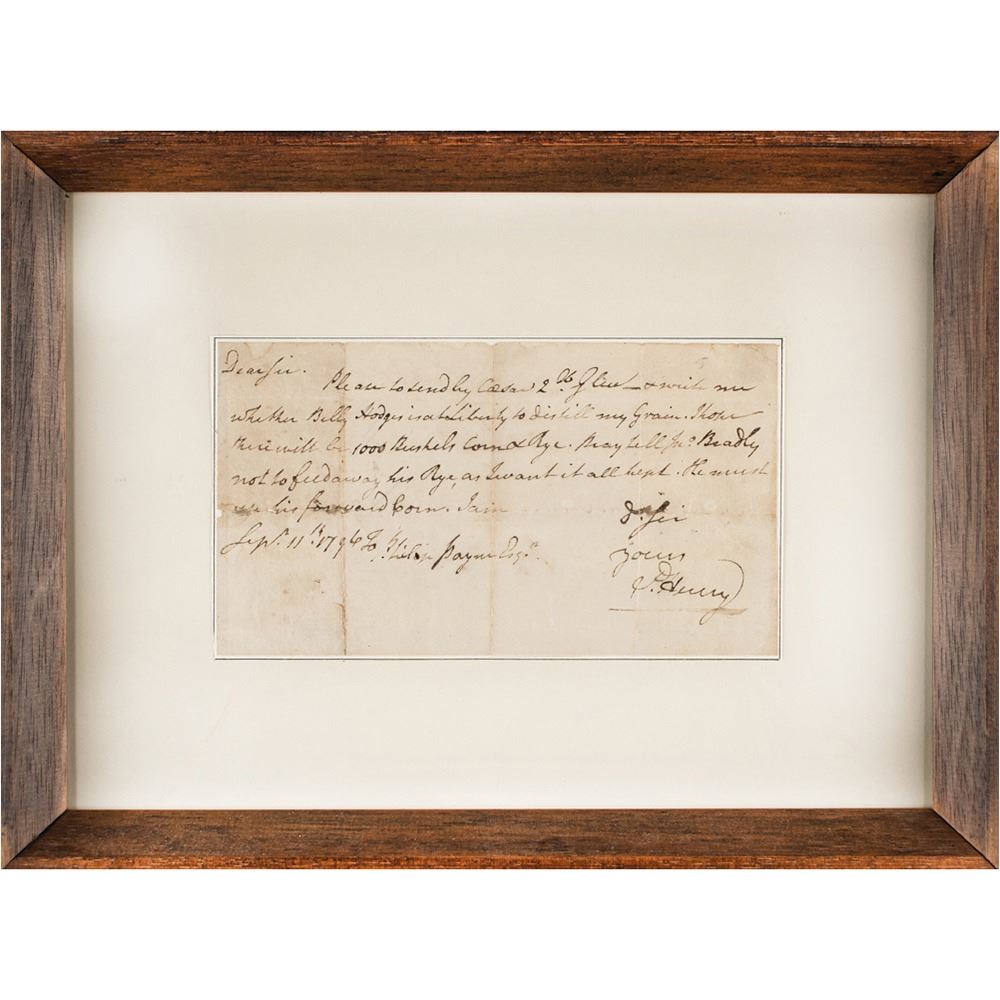 Dear Sir.
Please to send by Cæsar 2 lb & write me
whether Billy Hodges is at Liberty to distill my Grain. I hope
there will be 1000 Bushels Corn & Rye. Pray tell Jno. Bradly
not to feed away his Rye, as I want it all kept. He must
his forward Corn. I am
Dr. Sir
Sepr. 11th. 1794 To Philip Payne Esqr.
yours
P. Henry